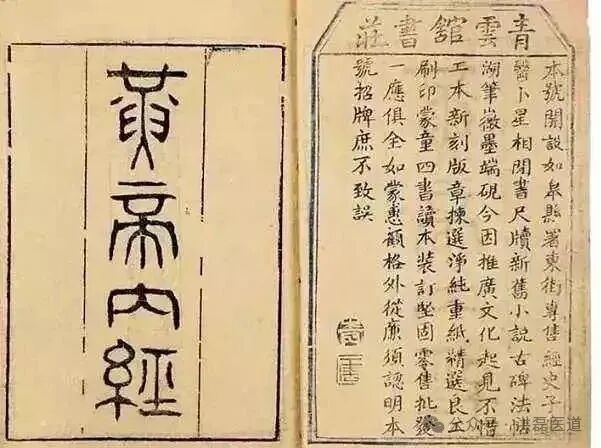 青雲館書莊
本號開設如皋縣署東街專售經史子
醫卜星相閒書尺牘新舊小說古碑法帖
湖筆徽墨端硯今因推廣文化起見不惜
工本新刻版章揀選淨純重紙精選良工
刷印蒙童四書讀本裝訂堅固零售批發
一應俱全如蒙惠顧格外從廉須認明本
號招牌庶不致誤
黃帝內經
磊医道